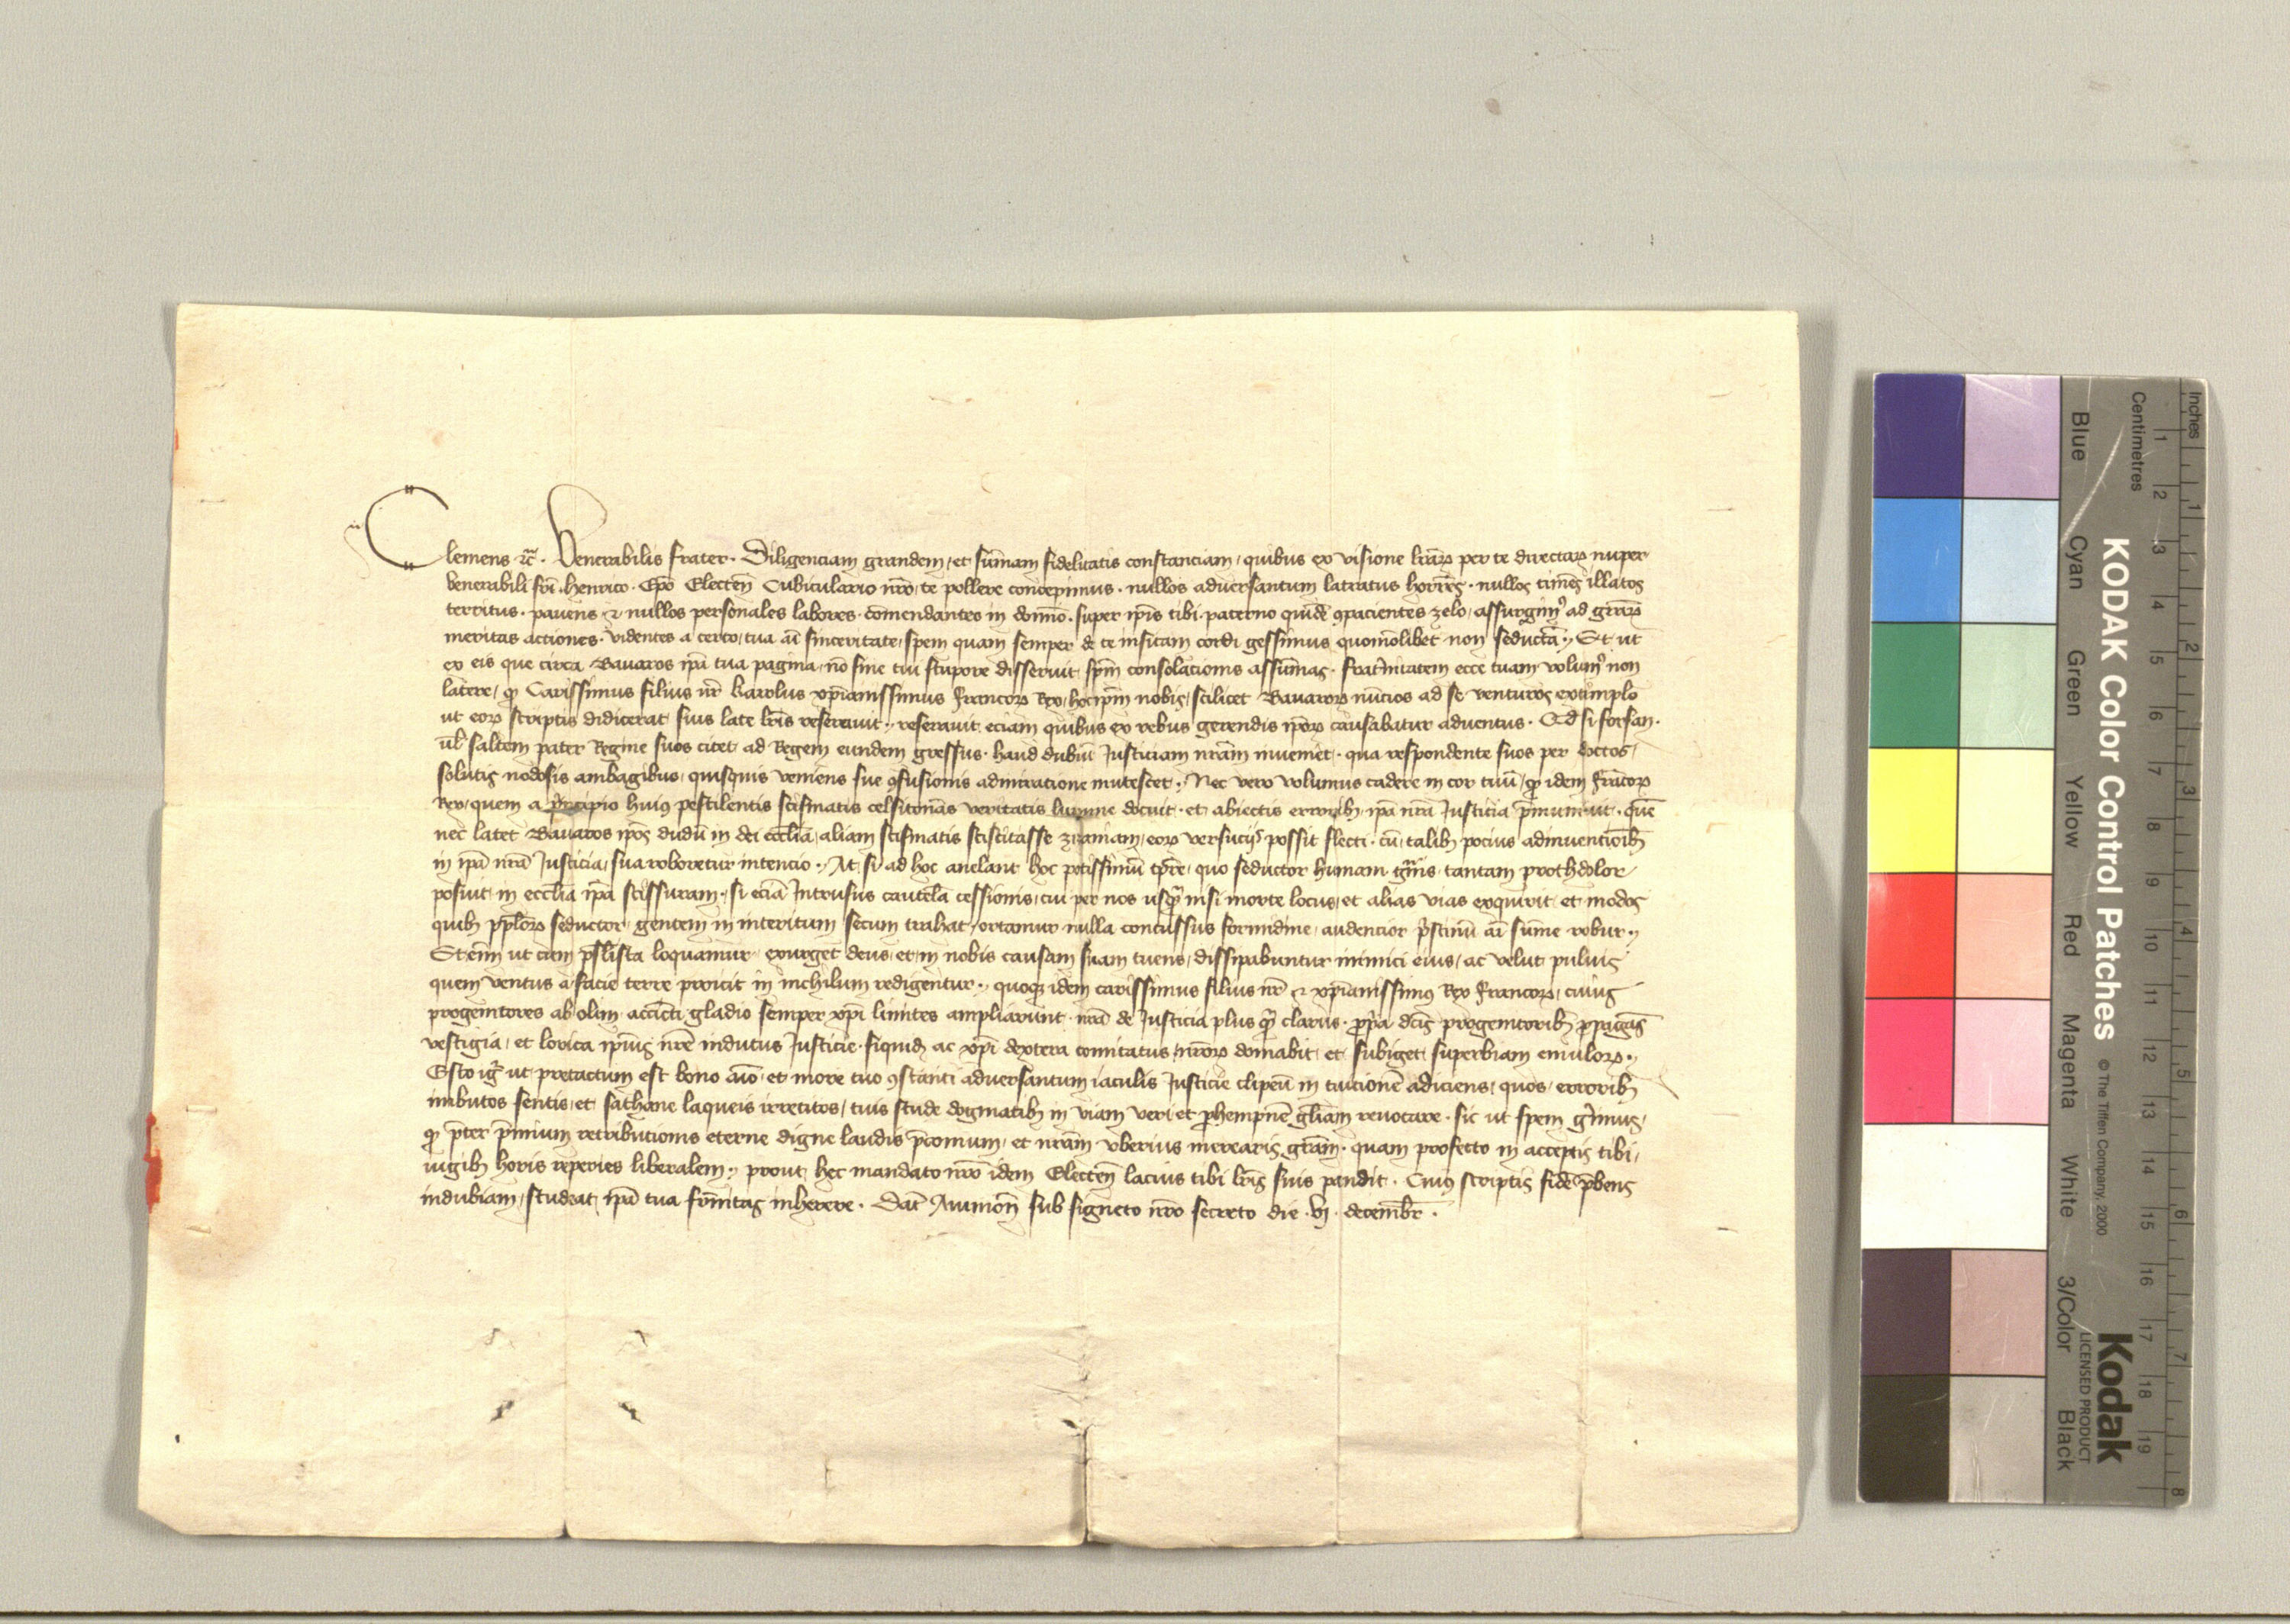 Clemens etc̃. Venerabilis frater. Diligenciam grandem, et sum̃am fidelitatis constanciam, quibus ex visione lr̃aꝝ per te directaꝝ nuper
venerabili fr̃i. henrico. Ep̃o Electeñ Cubiculario nr̃o, te pollere concepimus. nullos adversantum latratus horrẽs. nullos timẽs illatos
territus. pavens et nullos personales labores. com̃endantes in dom̃o. super ip̃is tibi. paterno quidẽ ꝯpacientes zelo, assurgimꝰ ad gr̃aꝝ
meritas actiones. videntes a certo, tua ãi sinceritate, spem quam semper de te insitam cordi gessimus quomõlibet non seductã. Et ut
ex eis que circa Bavaros ip̃a tua pagina, nõ sine tui stupore disseruit, sp̃m consolacionis assum̃as. frat̃nitatem ecce tuam volumꝰ non
latere, ꝙ Carissimus filius nr̃ karolus xp̃ianissimus francoꝝ Rex, hoc ip̃m nobis, scilicet Bavaroꝝ nũcios ad se venturos extimplo
ut eoꝝ scriptis didicerat suis late lr̃is reseravit. reseravit eciam quibus ex rebus gerendis ip̃oꝝ causabatur adventus. Qd̃ si forsan.
ul̃ saltem pater Regine suos citet ad Regem eundem gressus. haud dubiũ Justiciam nr̃am inveniet. qua respondente suos per doctos,
solutis nodosis ambagibus, quisquis veniens sue ꝯfusionis admiratione mutescet. Nec vero volumus cadere in cor tuũ, ꝙ idem francoꝝ
Rex, quem a p̃ncipio huiꝰ pestilentis scismatis celsitonãs veritatis lumine docuit. et abiectis erroribꝫ ip̃a nr̃a Justicia p̃munivit. quẽ
nec latet Bavaros ip̃os dudũ in dei eccl̃ia, aliam scismatis scicitasse zizaniam, eoꝝ versuciis possit flecti. cũ talibꝫ pocius adinventiõibꝫ
in ip̃a nr̃a Justicia, sua roboretur intencio. At si ad hoc anelant hoc potissimũ tp̃re, quo seductor humani gñis tantam prothdolor
posuit in eccl̃ia ip̃a scissuram. si eciã Intrusus cautela cessionis, cui per nos usꝙ nisi morte locus, et alias vias exquirit et modos
quibꝫ pp̃loꝝ seductor, gentem in interitum secum trahat, ortamur nulla concussus formidine, audencior p̃stinũ ãi sum̃e robur.
Et em̃ ut cum ps̃lista loquamur, exurget deus, et in nobis causam suam tuens, dissipabuntur inimici eius, ac velut pulvis
quem ventus a facie terre proicit in nichilum redigentur. quoqꝫ idem carissimus filius nr̃ et xp̃ianissimꝰ Rex francoꝝ, cuius
progenitores ab olim accincti gladio semper xp̃i limites ampliarunt. nr̃a de Justicia plus ꝙ̃ clarus. pp̃ia dc̃is progenitoribꝫ ppagãs
vestigia, et lorica ip̃ius nr̃e indutus Justicie. siquidẽ ac xp̃i dextera comitatus, nr̃oꝝ domabit et subiget superbiam emuloꝝ.
Esto igr̃ ut pretactum est bono ãio, et more tuo ꝯstanti adversantum iaculis Justicie clipeũ in tuicionẽ adiciens, quos, erroribꝫ
imbutos sentis, et sathane laqueis irretitos, tuis stude dogmatibꝫ in viam veri et phempnẽ gl̃iam revocare. sic ut spem gerimus,
ꝙ p̃ter p̃mium retributionis eterne digne laudis p̃conium, et nr̃am uberius merearis gr̃am. quam profecto in acceptis tibi,
iugibꝫ horis reperies liberalem. prout hec mandato nr̃o idem Electeñ lacius tibi lr̃is suis pandit. Cuiꝰ scriptis fidẽ p̃bens
indubiam, studeat ip̃a tua fr̃nitas inherere. Dat̃ Avinioñ sub signeto nr̃o secreto die. vj. decembr̃.
Inches
Centimetres
1 2 3 4 5 6 7 8
1 2 3 4 5 6 7 8 9 10 11 12 13 14 15 16 17 18 19
KODAK Color Control Patches © The Tiffen Company, 2000
Kodak
LICENSED PRODUCT
Blue Cyan Green Yellow Red Magenta White 3/Color Black